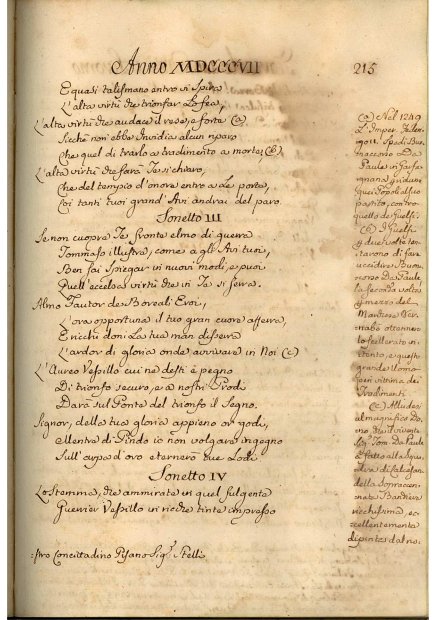 Anno MDCCCVII
215
E quasi talismano entro vi spira
L'alta virtù che trionfar La fea,
L'alta virtù che audace il rese, e forte (a)
Sicchè non ebbe Invidia alcun riparo
Che quel di trarlo a tradimento a morte; (b).
L'alta virtù che farà Te sì chiaro,
Che del tempio d'onore entro a Le porte,
Coi tanti tuoi grand'Avi andrai del paro
Sonetto III
Se non cuopra Te fronte elmo di guerra
Tommaso illustra, come a gli Avi tuoi,
Ben sai spiegar in nuovi modi, e puoi
Quell'eccelsa virtù che in Te si serra.
Almo Fautor de Boreali Eroi,
L'ora opportuna il tuo gran cuore afferra,
E ricchi doni La tua man disserra
L'ardor di gloria onde avvivare in Noi (c)
L'Aureo Vessillo cui ne desti è pegno
Di trionfo securo, e a nostri Prodi
Darà sul Ponte del trionfo il Segno.
Signor, della tua gloria appieno or godi,
Mentre di Pindo io non volgare ingegno
Sull'arpa d'oro eternerò tue Lodi.
Sonetto IV
Lo Stemma, che ammirate in quel fulgente
Guerrier Vessillo in ricche tinte impresso
:stro Concittadino Pisano Sig.r Stelli
(a) Nel 1249
L'Imper. Fede-
rigo II. spedì Buo-
naccorso Da
Paule in Garfa-
gnana, gridano
quei Popoli al suo
partito, contro
quello de Guelfi.
(b) I Guelfi
due volte ten-
tarono di fare
uccidere Buon-
accorso Da Paule
la seconda volta
per mezzo del
Marchese Ber-
nabò ottennero
lo scellerato in-
tento, e questo
grande Uomo
fu vittima dei
Tradimenti
(c) Allude
al magnifico Do-
no, che il vivente
Sig. Tom. Da Paule
à fatto alla Squa-
dra di Calcesana
della sopraccen-
nata Bandiera
ricchissima, ec-
cellentemente
dipinta dal no: